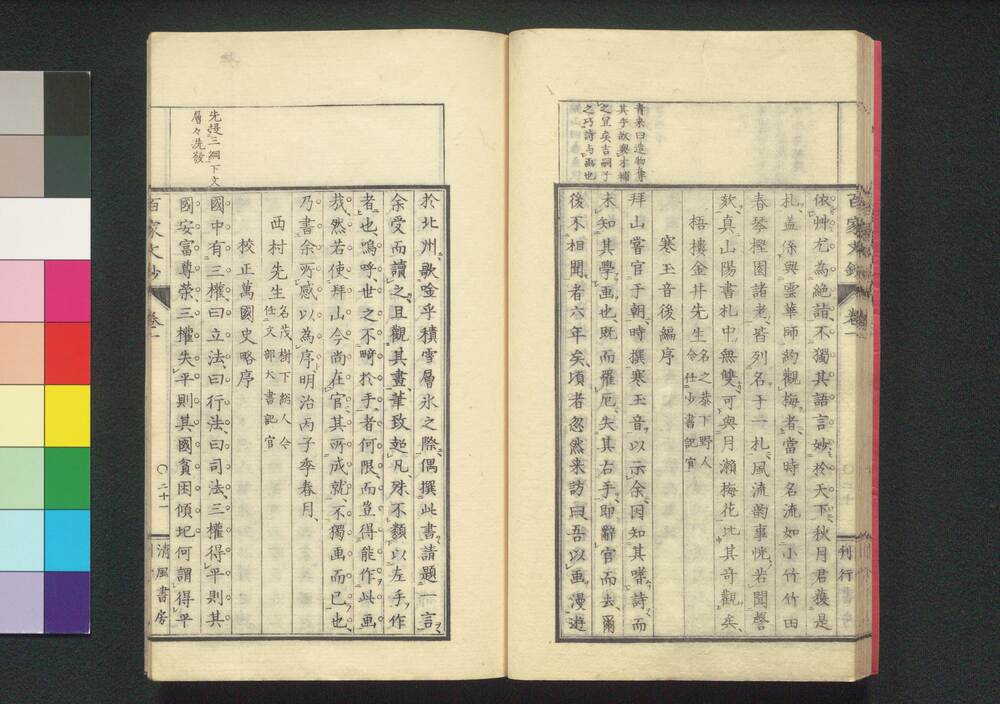 百家文鈔
卷一
刊行
青來曰造物奪
其手故與才補
之宜矣吉嗣子
之巧詩与画也
依卅尤為絶諳不獨其語言妙於天下秋月君獲是
札蓋係與雲華師約觀梅者當時名流如小竹竹田
春琴檉園諸老皆列名于一札風流韵事恍若聞謦
欬真山陽書札中無雙可與月瀨梅花比其奇觀矣
梧樓金井先生
名之恭下野人
今仕少書記官
寒玉音後編序
拜山嘗官于朝時撰寒玉音以示余因知其嗜詩而
未知其學画也既而罹厄失其右手即辭官而去爾
後不相聞者六年矣頃者忽然来訪曰吾以画漫遊
先提三綱下文
層々洗發
於北州歌唫乎積雪層氷之際偶撰此書請題一言
余受而讀之且觀其畫筆致超凡殊不類以左手作
者也嗚呼世之不畸於手者何限而豈得能作此画
哉然若使拜山今尚在官其所成就不獨画而已也
乃書余所感以為序明治丙子季春月
西村先生
名茂樹下総人今
仕文部大書記官
校正萬國史略序
國中有三權曰立法曰行法曰司法三權得平則其
國安富尊榮三權失平則其國貧困傾圮何謂得平
百家文鈔
卷一
〇二十一
清風書房